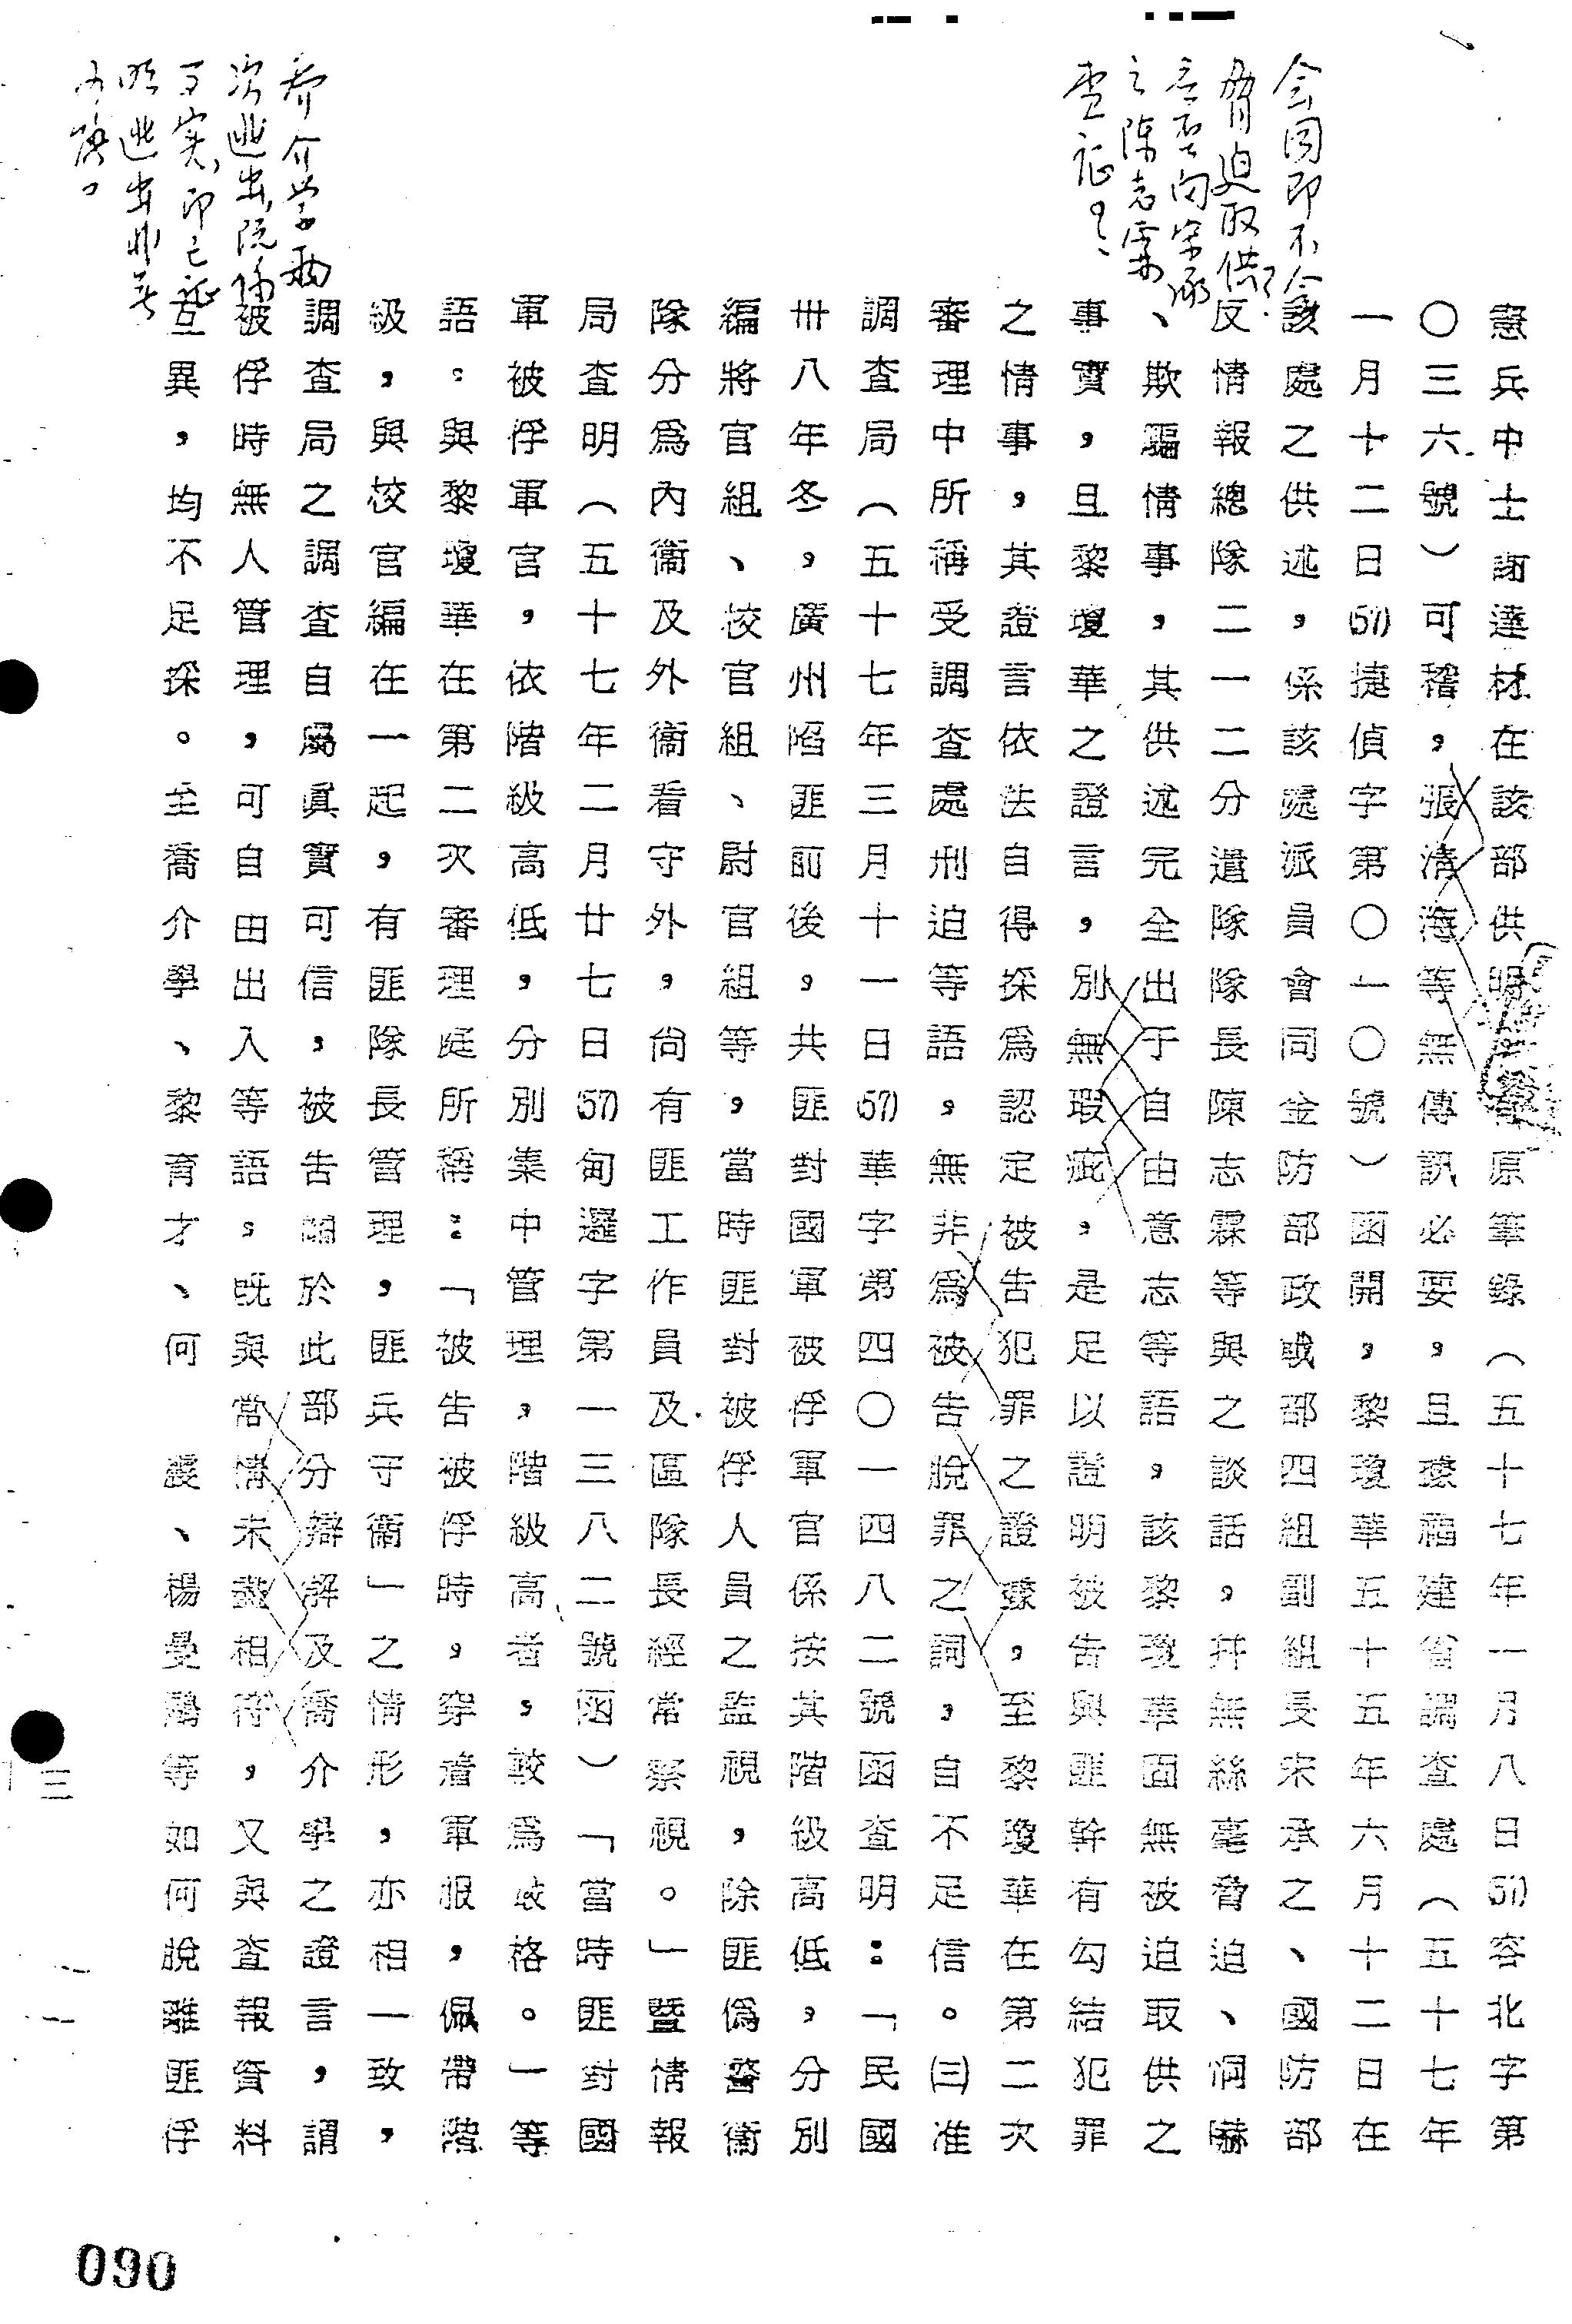 会同即不会
脅迫取供？
言否向宋承
之陳志霖
查证？！
憲兵中士謝達材在該部供明原筆錄（五十七年一月八日(57)容北字第
〇三六號）可稽，張清海等無傳訊必要，且據福建省調查處（五十七年
一月十二日(57)捷偵字第〇一〇號）函開，黎瓊華五十五年六月十二日在
該處之供述，係該處派員會同金防部政或部四組副組長宋承之、國防部
反情報總隊二一二分遣隊隊長陳志霖等與之談話，幷無絲毫脅迫、恫嚇
、欺騙情事，其供述完全出于自由意志等語，該黎瓊華固無被迫取供之
事實，且黎瓊華之證言，別無瑕疵，是足以證明被告與匪幹有勾結犯罪
之情事，其證言依法自得採爲認定被告犯罪之證據，至黎瓊華在第二次
審理中所稱受調查處刑迫等語，無非爲被告脫罪之詞，自不足信。㈢准
調查局（五十七年三月十一日(57)華字第四〇一四八二號函查明：「民國
卅八年冬，廣州陷匪前後，共匪對國軍被俘軍官係按其階級高低，分別
編將官組、校官組、尉官組等，當時匪對被俘人員之監視，除匪僞警衞
隊分爲內衞及外衞看守外，尚有匪工作員及區隊長經常監察視。」暨情報
局查明（五十七年二月廿七日(57)甸邏字第一三八二號函）「當時匪對國
軍被俘軍官，依階級高低，分別集中管理，階級高者，較爲嚴格。」等
語。與黎瓊華在第二次審理庭所稱：「被告被俘時，穿着軍服，佩帶階
級，與校官編在一起，有匪隊長管理，匪兵守衞」之情形，亦相一致，
調查局之調查自屬眞實可信，被告關於此部分辯解及喬介學之證言，謂
被俘時無人管理，可自由出入等語，旣與常情未盡相符，又與查報資料
互異，均不足採。至喬介學、黎育才、何震、楊曼鵬等如何脫離匪俘
乔介学兩
次逃出，既係
事实，即已证
明逃出非無
可誤。
三
090